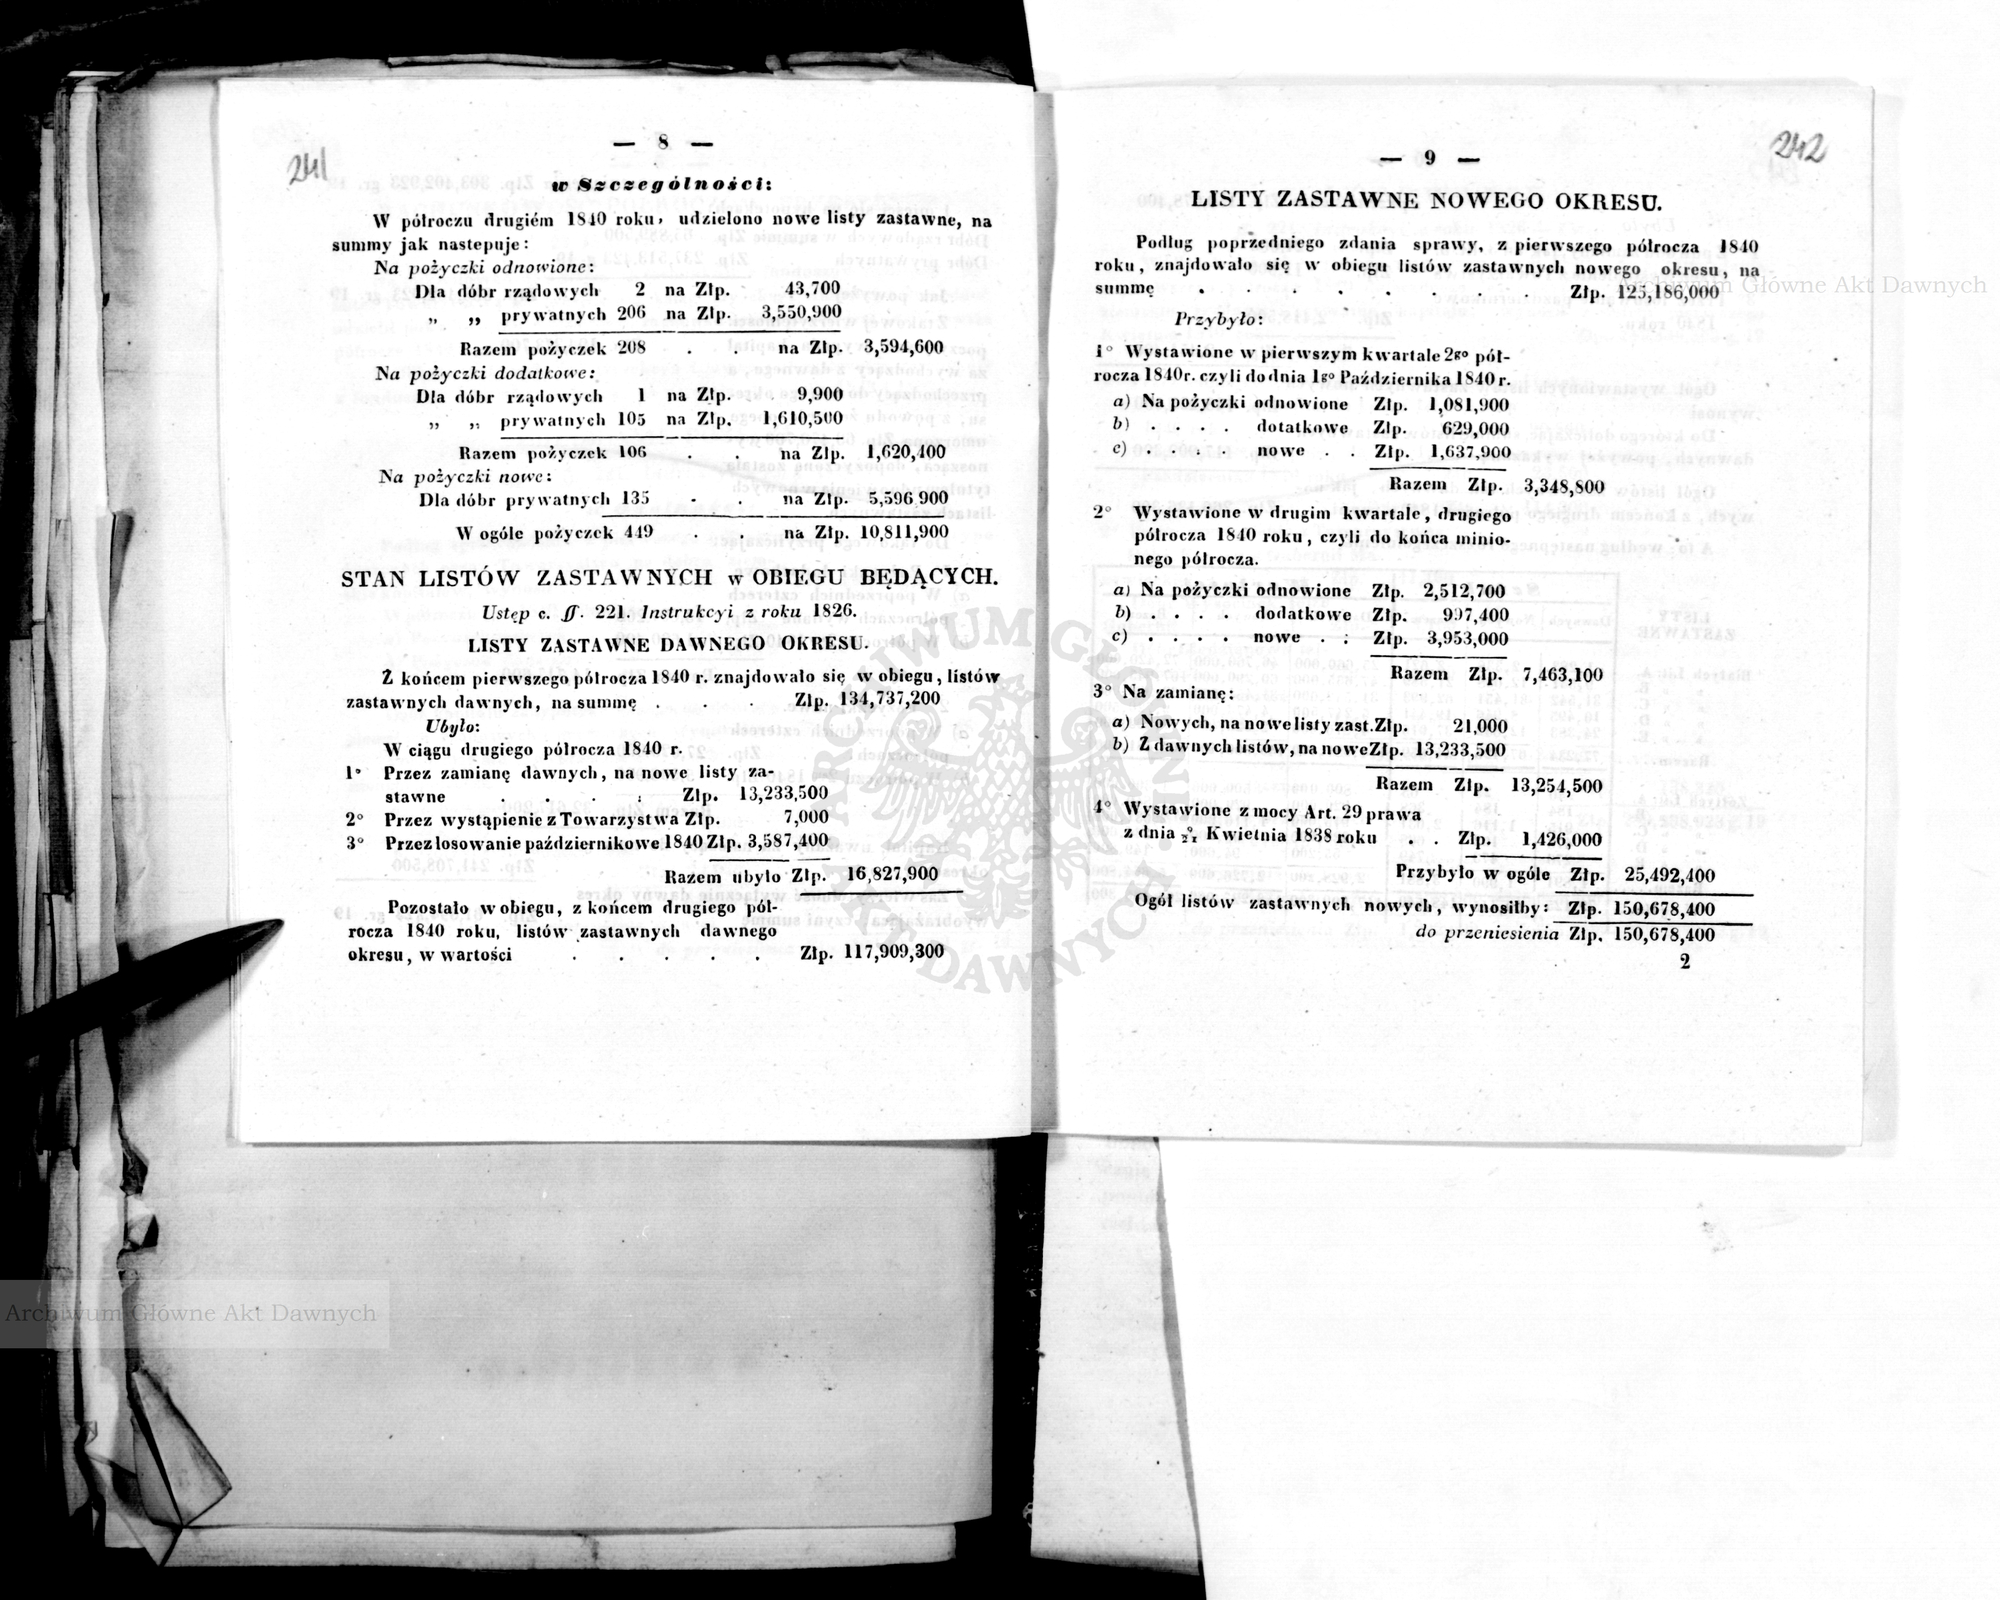 241
— 8 —
w Szczególności:
W półroczu drugiém 1840 roku, udzielono nowe listy zastawne, na
summy jak nastepuje:
Na pożyczki odnowione:
Dla dóbr rządowych 2 na Złp. 43,700
„ „ prywatnych 206 na Złp. 3,550,900
Razem pożyczek 208 . . na Złp. 3,594,600
Na pożyczki dodatkowe:
Dla dóbr rządowych 1 na Złp. 9,900
„ „ prywatnych 105 na Złp. 1,610,500
Razem pożyczek 106 . . na Złp. 1,620,400
Na pożyczki nowe:
Dla dóbr prywatnych 135 . . na Złp. 5,596 900
W ogóle pożyczek 449 . . na Złp. 10,811,900
STAN LISTÓW ZASTAWNYCH w OBIEGU BĘDĄCYCH.
Ustęp c. §. 221. Instrukcyi z roku 1826.
LISTY ZASTAWNE DAWNEGO OKRESU.
Z końcem pierwszego półrocza 1840 r. znajdowało się w obiegu, listów
zastawnych dawnych, na summę . . . Złp. 134,737,200
Ubyło:
W ciągu drugiego półrocza 1840 r.
1° Przez zamianę dawnych, na nowe listy za-
stawne . . . : Złp. 13,233,500
2° Przez wystąpienie z Towarzystwa Złp. 7,000
3° Przez losowanie październikowe 1840 Złp. 3,587,400
Razem ubyło Złp. 16,827,900
Pozostało w obiegu, z końcem drugiego pół-
rocza 1840 roku, listów zastawnych dawnego
okresu, w wartości . . . . . Złp. 117,909,300
242
— 9 —
LISTY ZASTAWNE NOWEGO OKRESU.
Podług poprzedniego zdania sprawy, z pierwszego półrocza 1840
roku, znajdowało się w obiegu listów zastawnych nowego okresu, na
summę . . . . . . . . Złp. 125,186,000
Przybyło:
1° Wystawione w pierwszym kwartale 2go pół-
rocza 1840r. czyli do dnia 1go Października 1840 r.
a) Na pożyczki odnowione Złp. 1,081,900
b) . . . . dotatkowe Złp. 629,000
c) . . . . nowe . . Złp. 1,637,900
Razem Złp. 3,348,800
2° Wystawione w drugim kwartale, drugiego
półrocza 1840 roku, czyli do końca minio-
nego półrocza.
a) Na pożyczki odnowione Złp. 2,512,700
b) . . . . dodatkowe Złp. 997,400
c) . . . . nowe . : Złp. 3,953,000
Razem Złp. 7,463,100
3° Na zamianę:
a) Nowych, na nowe listy zast. Złp. 21,000
b) Z dawnych listów, na nowe Złp. 13,233,500
Razem Złp. 13,254,500
4° Wystawione z mocy Art. 29 prawa
z dnia 9/21 Kwietnia 1838 roku . . Złp. 1,426,000
Przybyło w ogóle Złp. 25,492,400
Ogół listów zastawnych nowych, wynosiłby: Złp. 150,678,400
do przeniesienia Złp. 150,678,400
2
Archiwum Główne Akt Dawnych
Archiwum Główne Akt Dawnych
ARCHIWUM GŁÓWNE AKT DAWNYCH